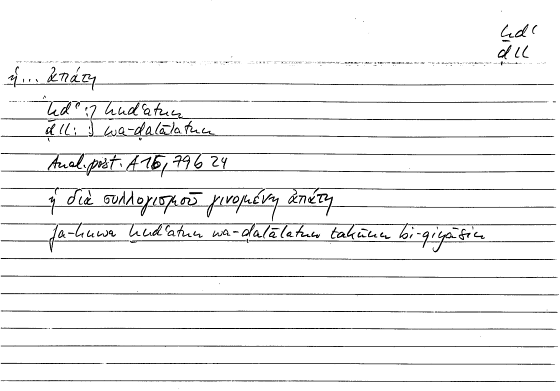 ḫdʿ
ḍll
ἡ... ἀπάτη
ḫdʿ:} ḫudʿatun
ḍll:} wa-ḍalālatun
Anal. post. A 16, 79b 24
ἡ διὰ συλλογισμοῦ γινομένη ἀπάτη
fa-huwa ḫudʿatun wa-ḍalālatun takūnu bi-qiyāsin